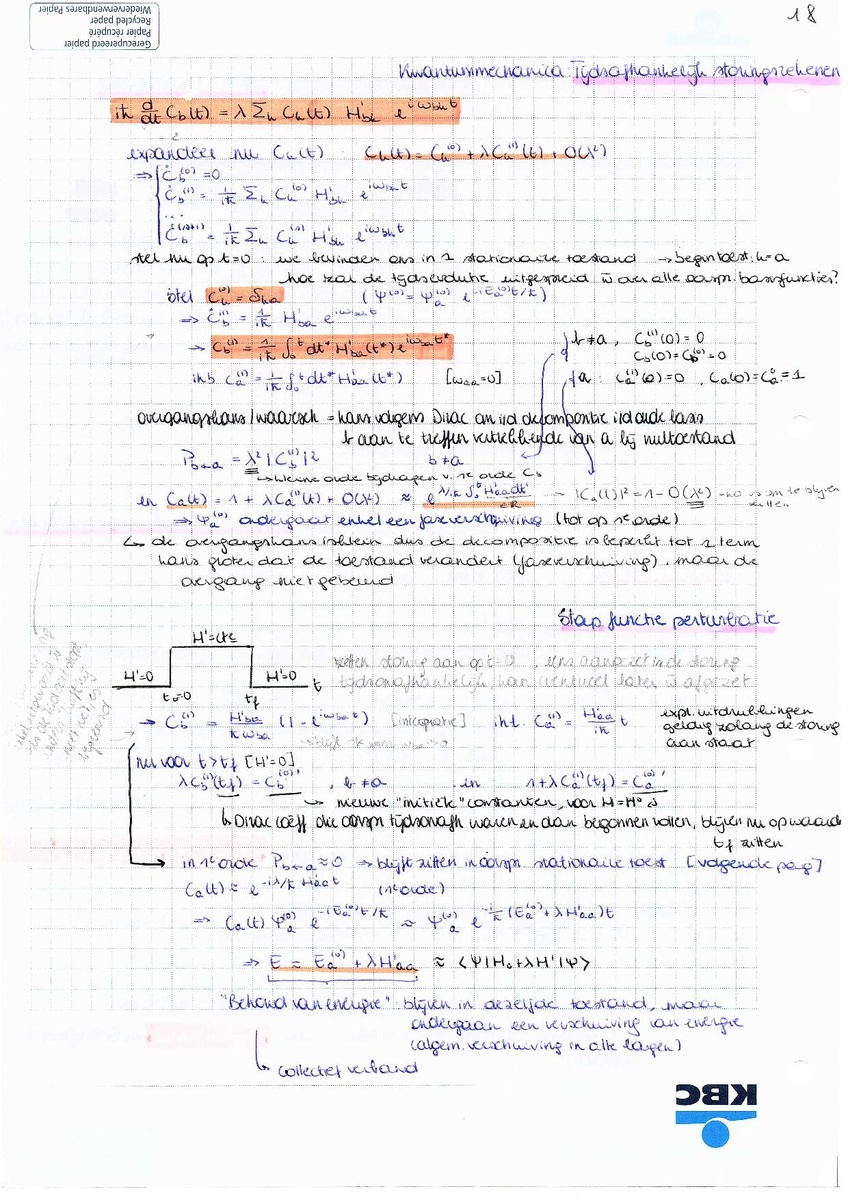 18
Gerecupereerd papier
Papier récupéré
Recycled paper
Wiederverwendbares Papier
Kwantummechanica: Tijdsafhankelijk storingsrekenen
iħ d/dt C_b(t) = λ Σ_k C_k(t) H'_bk e^{iω_bk t}
expandeer nu C_k(t) C_k(t) = C_k^(0) + λC_k^(1)(t) + O(λ²)
⇒ Ċ_b^(0) = 0
Ċ_b^(1) = 1/iħ Σ_k C_k^(0) H'_bk e^{iω_bk t}
...
Ċ_b^(s+1) = 1/iħ Σ_k C_k^(s) H'_bk e^{iω_bk t}
stel nu op t=0 : we bevinden ons in 1 stationaire toestand → begintoest. k=a
hoe zal de tijdsevolutie uitgespreid w over alle oorspr. basisfuncties?
Stel C_k^(0) = δ_ka (Ψ^(0) = Ψ_a^(0) e^{-iE_a^(0)t/ħ})
⇒ Ċ_b^(1) = 1/iħ H'_ba e^{iω_ba t}
→ C_b^(1) = 1/iħ ∫_0^t dt* H'_ba(t*) e^{iω_ba t*}
b≠a , C_b^(1)(0) = 0
C_b(0) = C_b^(0) = 0
ihb C_a^(1) = 1/iħ ∫_0^t dt* H'_aa(t*) [ω_aa=0]
a : C_a^(1)(0) = 0 , C_a(0) = C_a^0 = 1
overgangskans/waarsch = kans volgens Dirac om id decompositie id oude basis
b aan te treffen vertrekkende van a bij nultoestand
P_b←a = λ²|C_b^(1)|² b≠a
→ kleine orde bijdragen v. 1e orde C_b
en C_a(t) = 1 + λC_a^(1)(t) + O(λ²) ≈ e^{λ/iħ ∫_0^t H'_aa dt'} ~ |C_a(t)|² = 1 - O(λ²) → kans om te blijven zitten
⇒ Ψ_a^(0) ondergaat enkel een faseverschuiving (tot op 1e orde)
↳ de overgangskans is klein dus de decompositie is beperkt tot 1 term
kans groter dat de toestand verandert (faseverschuiving), maar de
overgang niet gebeurd
Stap functie perturbatie
H'=0 H'=cte H'=0 t
t_0=0 t_f
zetten storing aan op t=0 , eens aangezet is de storing
tijdsonafhankelijk, kan eventueel later w afgezet
→ C_b^(1) = H'_ba/ħω_ba (1 - e^{iω_ba t}) [integratie] ihb. C_a^(1) = H'_aa/iħ t
expl. uitdrukkingen
geldig zolang de storing
aan staat
nu voor t>t_f [H'=0]
λC_b^(1)(t_f) = C_b^(0)' , b≠a en 1+λC_a^(1)(t_f) = C_a^(0)'
↳ nieuwe "initiële" constanten, voor H=H⁰
↳ Dirac coëff die oorspr tijdsonafh waren en dan begonnen rollen, blijven nu op waarde
t_f zitten
in 1e orde P_b←a ≈ 0 → blijft zitten in oorspr. stationaire toest [volgende pag]
C_a(t) ≈ e^{-iλ/ħ H'_aa t} (1e orde)
⇒ C_a(t) Ψ_a^(0) e^{-iE_a^(0)t/ħ} ≈ Ψ_a^(0) e^{-i/ħ (E_a^(0)+λH'_aa)t}
⇒ E ≈ E_a^(0) + λH'_aa ≈ ⟨Ψ|H_0+λH'|Ψ⟩
"Behoud van energie": blijven in dezelfde toestand, maar
ondergaan een verschuiving van energie
(algem. verschuiving in alle lagen)
↳ collectief verband
KBC